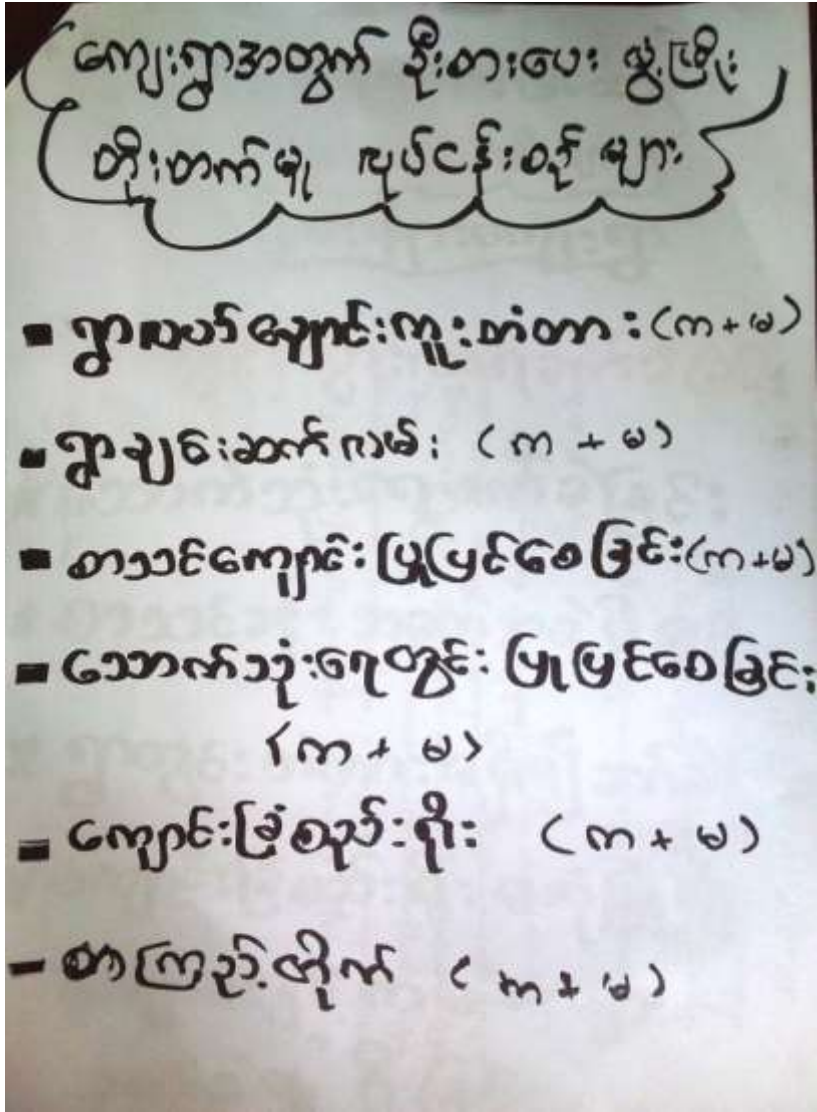 ကျေးရွာအတွက် ဦးစားပေး ဖွံ့ဖြိုး
တိုးတက်မှု လုပ်ငန်းစဉ် များ
- ရွာလယ်ချောင်းကူးတံတား (က+မ)
- ရွာချင်းဆက်လမ်း (က + မ)
- စာသင်ကျောင်း ပြုပြင်စေခြင်း (က+မ)
- သောက်သုံးရေတွင်း ပြုပြင်စေခြင်း
(က + မ)
- ကျောင်းခြံစည်းရိုး (က + မ)
- စာကြည့်တိုက် (က + မ)